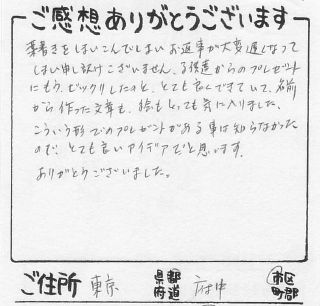 ご感想ありがとうございます
葉書きをしまいこんでしまいお返事が大変遅くなって
しまい申し訳ございません。子供達からのプレゼント
にもう、ビックリしたのと、とても良くできていて、名前
から作った文章も、絵もとっても気に入りました。
こういう形でのプレゼントがある事は知らなかった
ので、とても良いアイデアだと思います。
ありがとうございました。
ご住所 東京 都道府県 府中 市区町郡